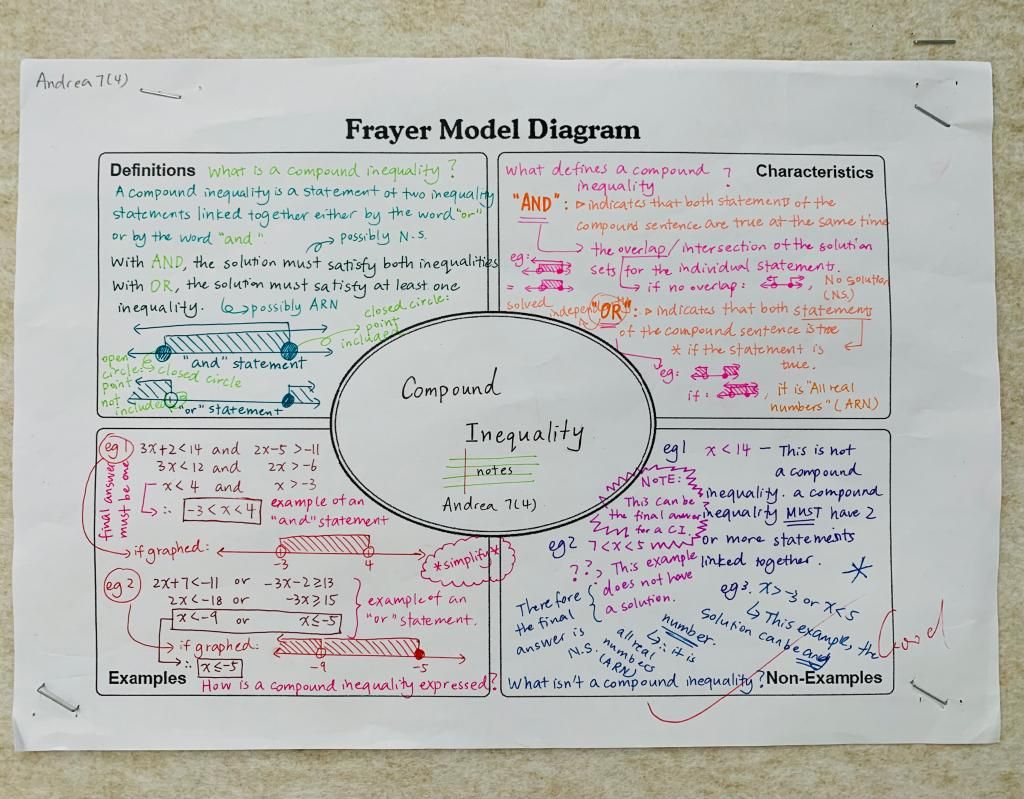 Andrea 7(4)
Frayer Model Diagram
Definitions What is a compound inequality ?
A compound inequality is a statement of two inequality
statements linked together either by the word "or"
or by the word "and".
possibly N.S.
With AND, the solution must satisfy both inequalities
With OR, the solution must satisfy at least one
inequality. possibly ARN
closed circle:
point
included
"and" statement
open
circle: closed circle
point
not
included
"or" statement
What defines a compound ? Characteristics
inequality
"AND": indicates that both statements of the
compound sentence are true at the same time
the overlap/intersection of the solution
eg: sets for the individual statements.
= if no overlap: , No solution
(N.S.)
solved
independently
"OR": indicates that both statements
of the compound sentence is true
* if the statement is
true.
eg:
if: , it is "All real
numbers" (ARN)
Compound
Inequality
notes
Andrea 7(4)
eg1 3x+2<14 and 2x-5>-11
3x<12 and 2x>-6
x<4 and x>-3
∴ -3<x<4 example of an
"and" statement
final answer
must be one
if graphed:
-3 4
*simplify*
eg2 2x+7<-11 or -3x-2≥13
2x<-18 or -3x≥15
x<-9 or x≤-5
example of an
"or" statement.
if graphed:
-9 -5
∴ x≤-5
Examples How is a compound inequality expressed?
eg1 x<14 – This is not
a compound
inequality. a compound
inequality MUST have 2
or more statements
linked together.
NOTE:
This can be
the final answer
for a CI.
eg2 7<x<5
??, This example
does not have
a solution.
Therefore
the final
answer is
N.S.
*
eg3. x>-3 or x<5
This example, the
solution can be any
number.
∴ it is
all real
numbers
(ARN)
Good
What isn't a compound inequality? Non-Examples